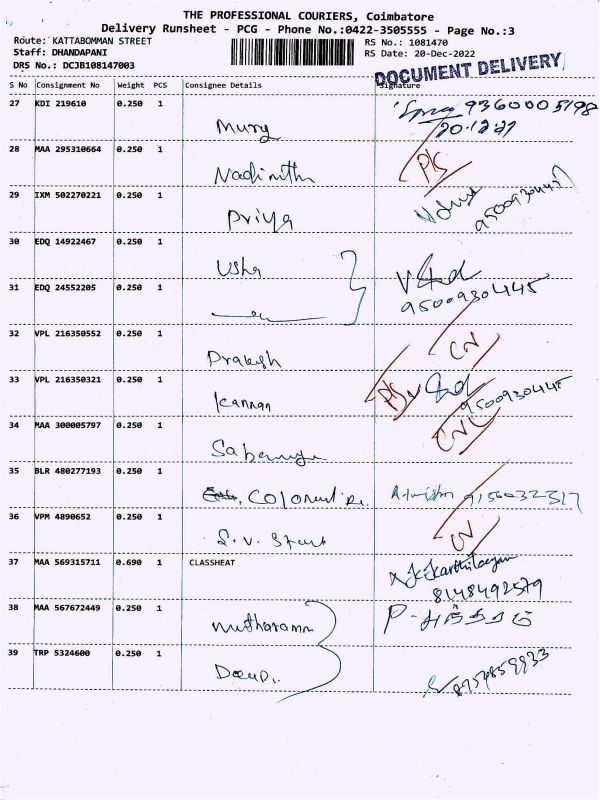 THE PROFESSIONAL COURIERS, Coimbatore
Delivery Runsheet - PCG - Phone No.:0422-3505555 - Page No.:3
Route: KATTABOMMAN STREET RS No.: 1081470
Staff: DHANDAPANI RS Date: 20-Dec-2022
DRS No.: DCJB108147003
DOCUMENT DELIVERY
S No Consignment No Weight PCS Consignee Details Signature
27 KDI 219610 0.250 1 9360005198
20.12.22
28 MAA 295310664 0.250 1
29 IXM 502270221 0.250 1 Priya 9500930445
30 EDQ 14922467 0.250 1 Usha
31 EDQ 24552205 0.250 1 9500930445
32 VPL 216350552 0.250 1 Prakash
33 VPL 216350321 0.250 1 Kannan 9500930445
34 MAA 300005797 0.250 1
35 BLR 480277193 0.250 1
36 VPM 4890652 0.250 1 S.V.
37 MAA 569315711 0.690 1 CLASSHEAT
8148492579
38 MAA 567672449 0.250 1
39 TRP 5324600 0.250 1